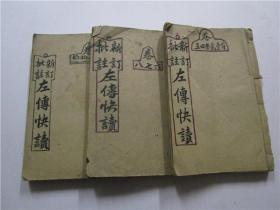 新訂
批註
左傳快讀
新訂
批註
左傳快讀
卷
七八
新訂
批註
左傳快讀
卷